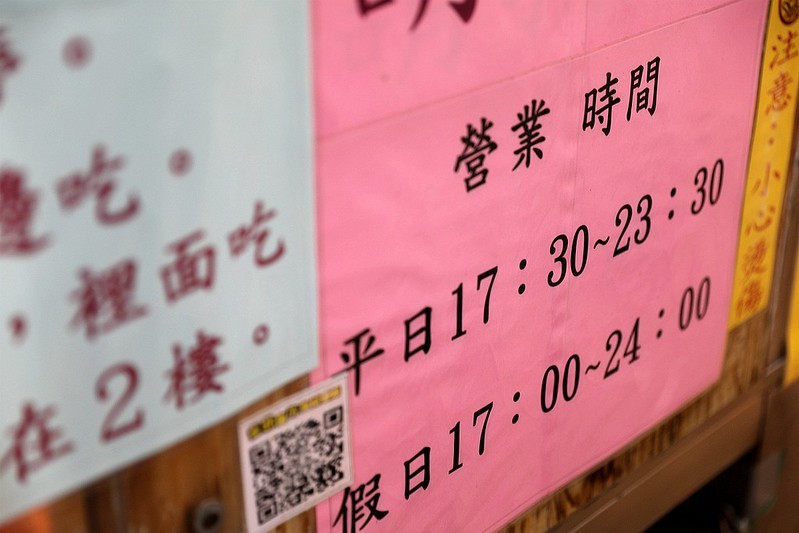 邊吃。
，裡面吃
在2樓。
營業 時間
平日17：30~23：30
假日17：00~24：00
注意：小心燙傷